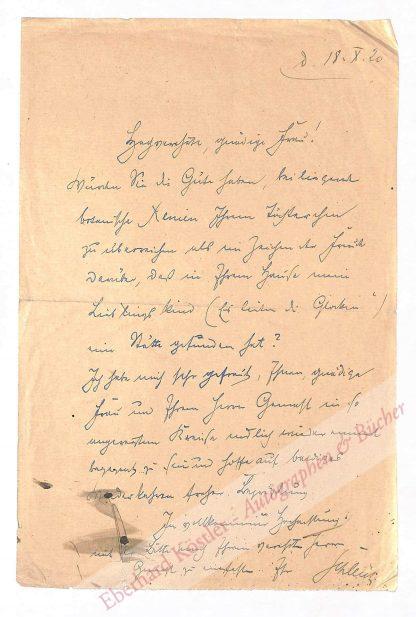 d. 18.X.20
Hochverehrte, gnädige Frau!
Würden Sie die Güte haben, beiliegende
botanische Namen Ihrem Töchterchen
zu überreichen als ein Zeichen der Freude
darüber, daß in Ihrem Hause mein
Lieblingskind („Es läuten die Glocken“)
eine Stätte gefunden hat?
Ich habe mich sehr gefreut, Ihnen, gnädige
Frau und Ihrem Herrn Gemahl in so
angeregtem Kreise endlich wieder einmal
begegnet zu sein und hoffe auf baldige
Wiederkehren froher Begegnung
In vollkommener Hochachtung
mit der Bitte, mich Ihrem verehrten Herrn
Gemahl zu empfehlen Ihr
Eberhard Köstler · Autographen & Bücher